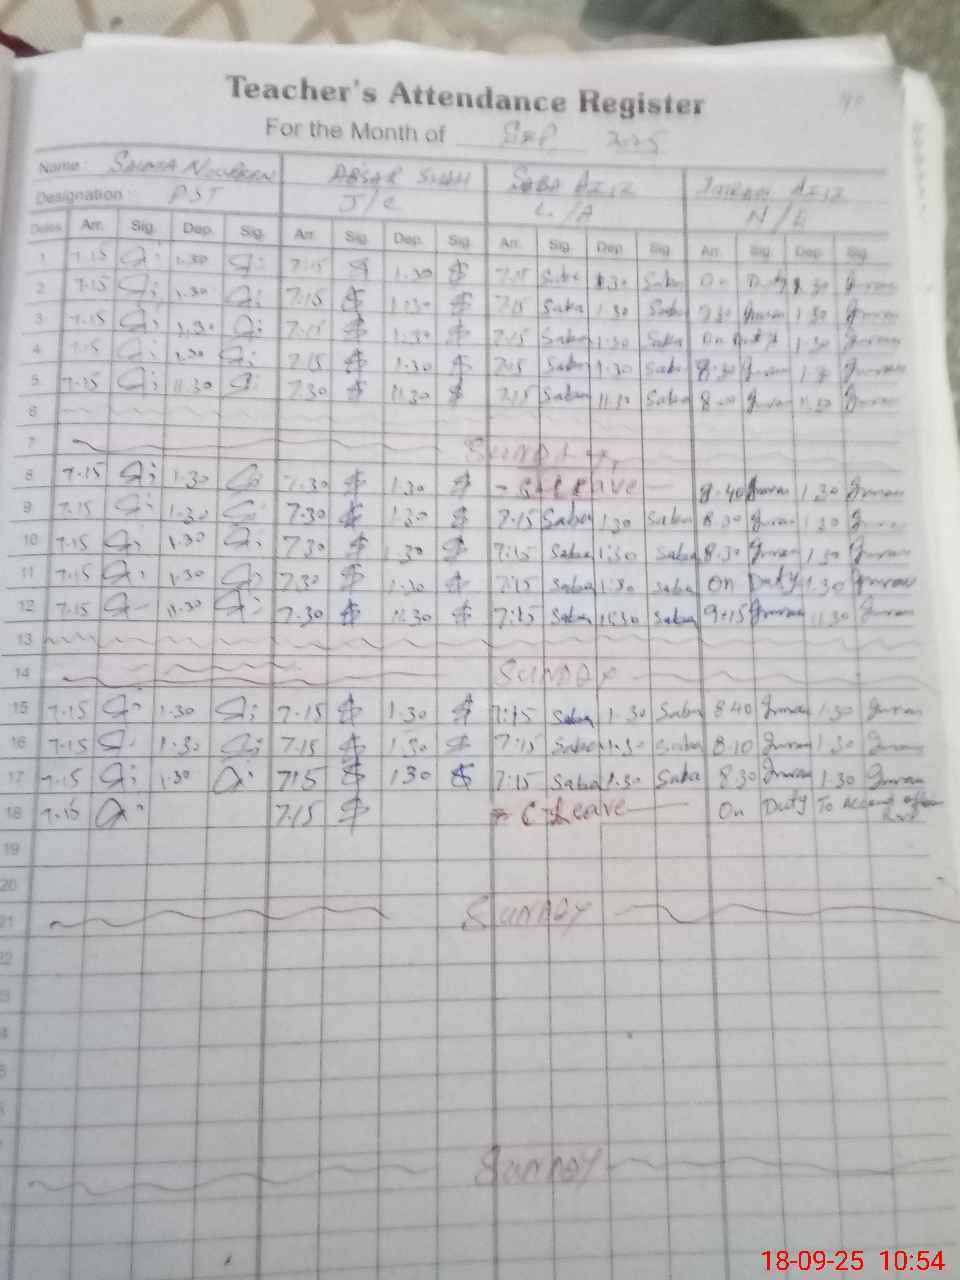 Teacher's Attendance Register
For the Month of SEP 2025
Name: SAIMA NOUREEN ABSAR SHAH SABA AZIZ IMRAN AZIZ
Designation: PST J/C L/A N/E
Dates Arr. Sig. Dep. Sig. Arr. Sig. Dep. Sig. Arr. Sig. Dep. Sig. Arr. Sig. Dep. Sig.
1 7.15 1.30 7:15 1.30 7:15 Saba 1.30 Saba On Duty 1.30 Imran
2 7.15 1.30 7:15 1:30 7:15 Saba 1.30 Saba 7.30 Imran 1.30 Imran
3 7.15 1.30 7:15 1.30 7:15 Saba 1.30 Saba On Duty 1.30 Imran
4 7.15 1.30 7.15 1.30 7:15 Saba 1.30 Saba 8.30 Imran 1.30 Imran
5 7.15 11.30 7.30 11.30 7:15 Saba 11.30 Saba Imran 11.30 Imran
6
7 SUNDAY
8 7.15 1.30 7.30 1.30 Leave 8.40 Imran 1.30 Imran
9 7.15 1.30 7.30 1.30 7.15 Saba 1.30 Saba 8.30 Imran 1.30 Imran
10 7.15 1.30 7.30 1.30 7:15 Saba 1:30 Saba 8.30 Imran 1.30 Imran
11 7.15 1.30 7.30 1.30 7:15 Saba 1:30 Saba On Duty 1.30 Imran
12 7.15 11.30 7.30 11.30 7:15 Saba 11:30 Saba 9:15 Imran 11.30 Imran
13
14 SUNDAY
15 7.15 1.30 7.15 1.30 7:15 Saba 1.30 Saba 8.40 Imran 1.30 Imran
16 7.15 1.30 7.15 1.30 7:15 Saba 1.30 Saba 8.10 Imran 1.30 Imran
17 7.15 1.30 7.15 1.30 7:15 Saba 1.30 Saba 8.30 Imran 1.30 Imran
18 7.15 7.15 C Leave On Duty To
19
20
21 SUNDAY
22
SUNDAY
18-09-25 10:54